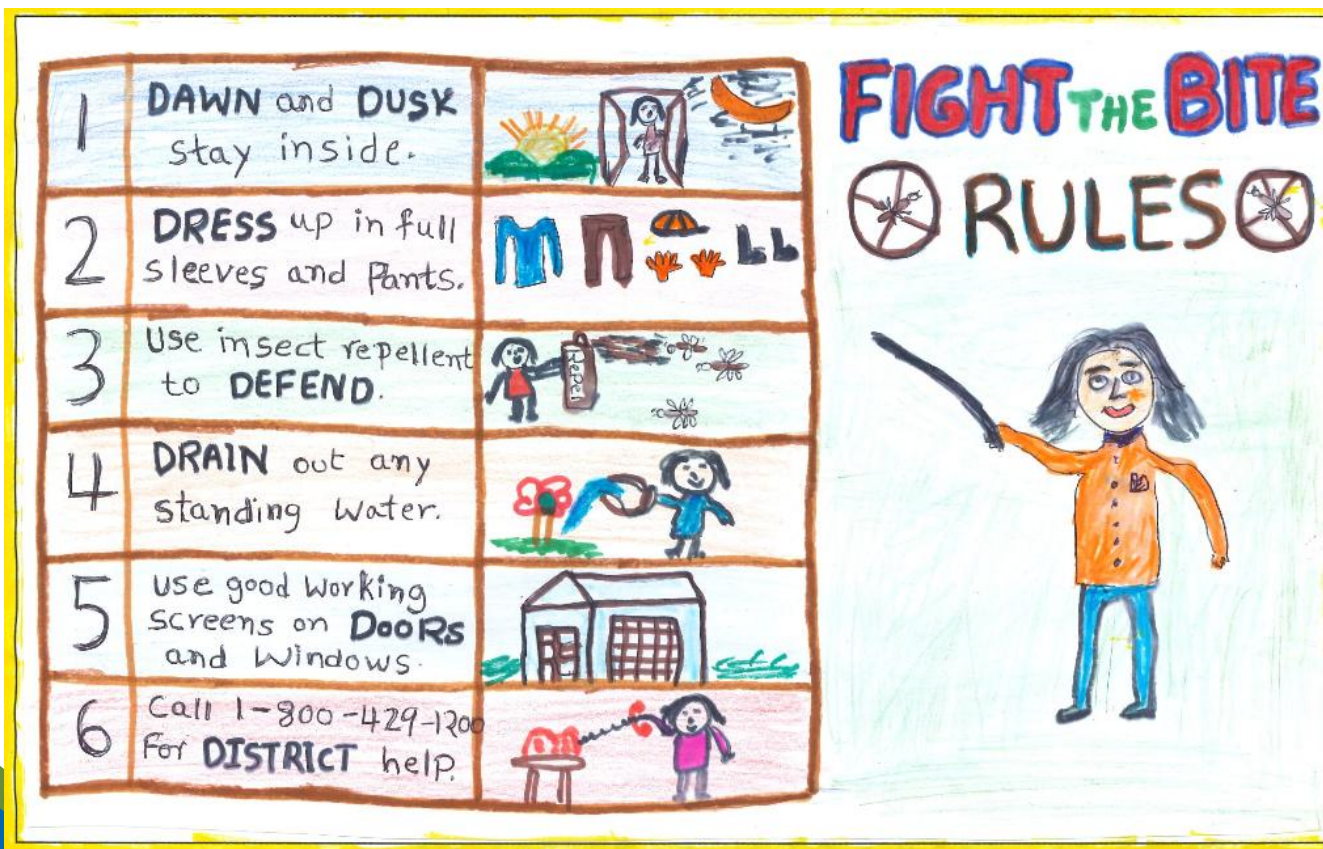 FIGHT THE BITE
RULES
1
DAWN and DUSK
stay inside.
2
DRESS up in full
sleeves and Pants.
3
Use insect repellent
to DEFEND.
Repel
4
DRAIN out any
standing Water.
5
use good working
screens on DOORS
and Windows.
6
Call 1-800-429-1200
For DISTRICT help.